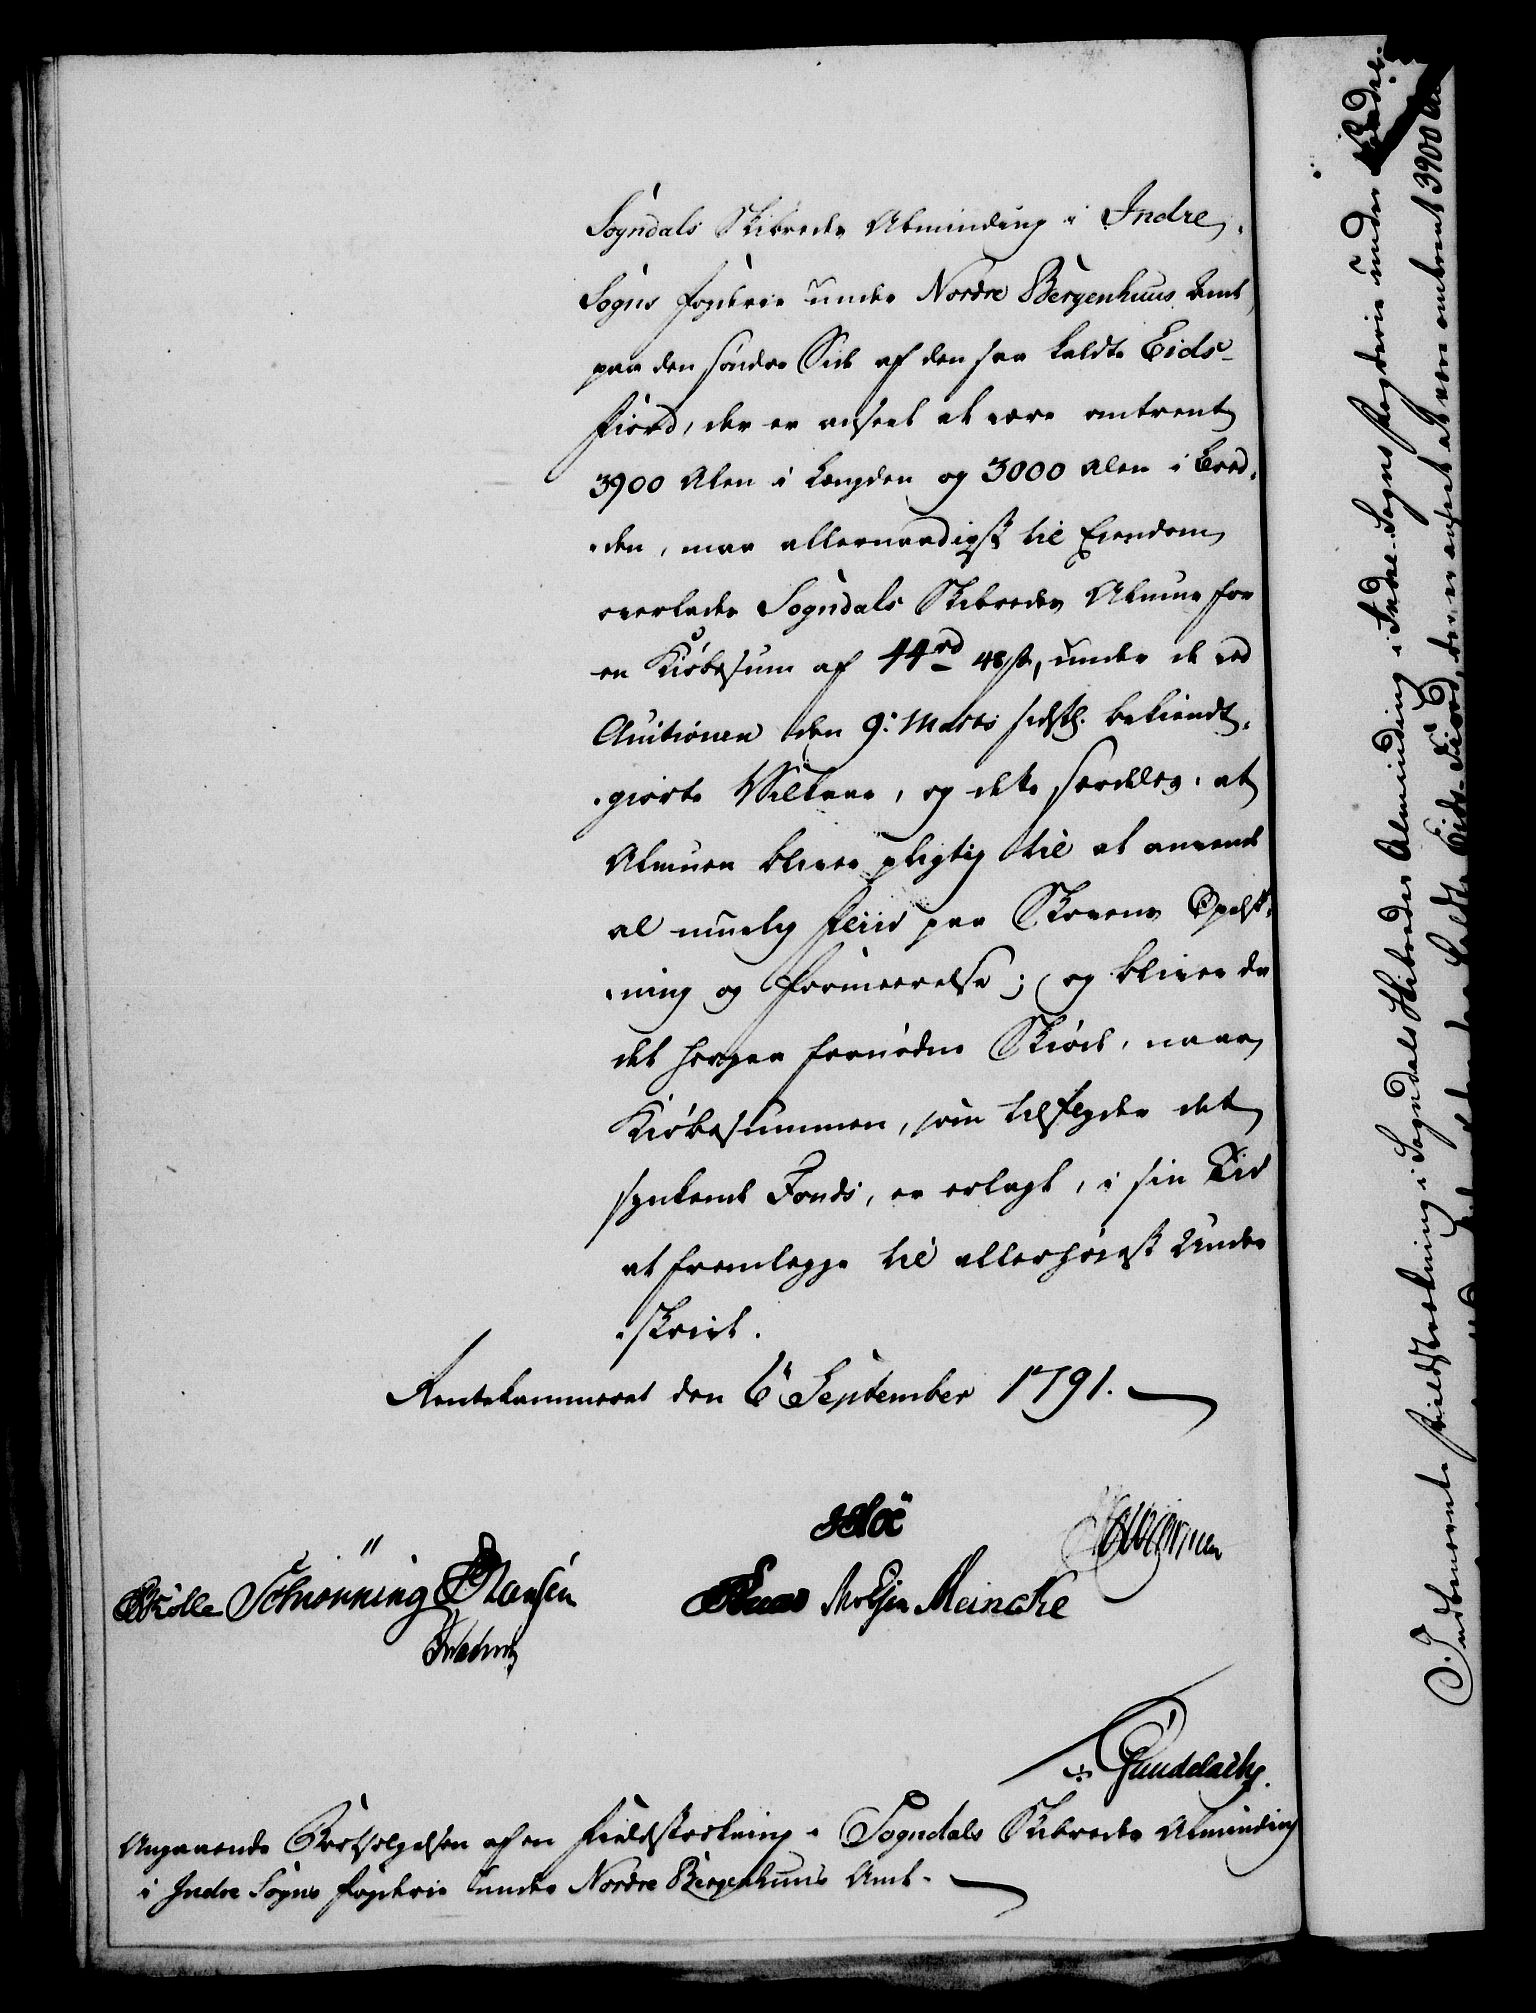 Sogndals Skibredes Alminding i Indre
Sogns Fogderie under Nordre Bergenhuus Amt,
paa den søndre Side af den saa kaldte Eids-
Fiord, der er anseet at være omtrent
3900 Alen i Længden og 3000 Alen i Bred-
-den, maa allernaadigst til Eiendom
overlades Sogndals Skibredes Almue for
en Kiøbesum af 44 rd 48 s, under de ved
Auctionen den 9. Marts sidstl. bekiendt-
-giorte Vilkaar, og dette særdeles, at
Almuen bliver pligtig til at anvende
al muelig Fliid paa Skovens Opelsk-
-ning og Formeerelse; og bliver da
det herpaa fornødne Skiøde, naar
Kiøbesummen, som tilfalder det
synkende Fonds, er erlagt, i sin Tid
at fremlægge til allerhøieste Under
-skrivt.
Rentekammeret den 6 September 1791.
Schiønning Hansen
Meincke
Gundelach.
Angaaende Bortsælgelsen af en Fieldstrækning i Sogndals Skibredes Alminding
i Indre Sogns Fogderie under Nordre Bergenhuus Amt.
Indbemeente Fieldstrækning i Sogndals Skibredes Alminding i Indre Sogns Fogderie under
kaldte Eids-Fiord, der er anseet at være omtrent 3900